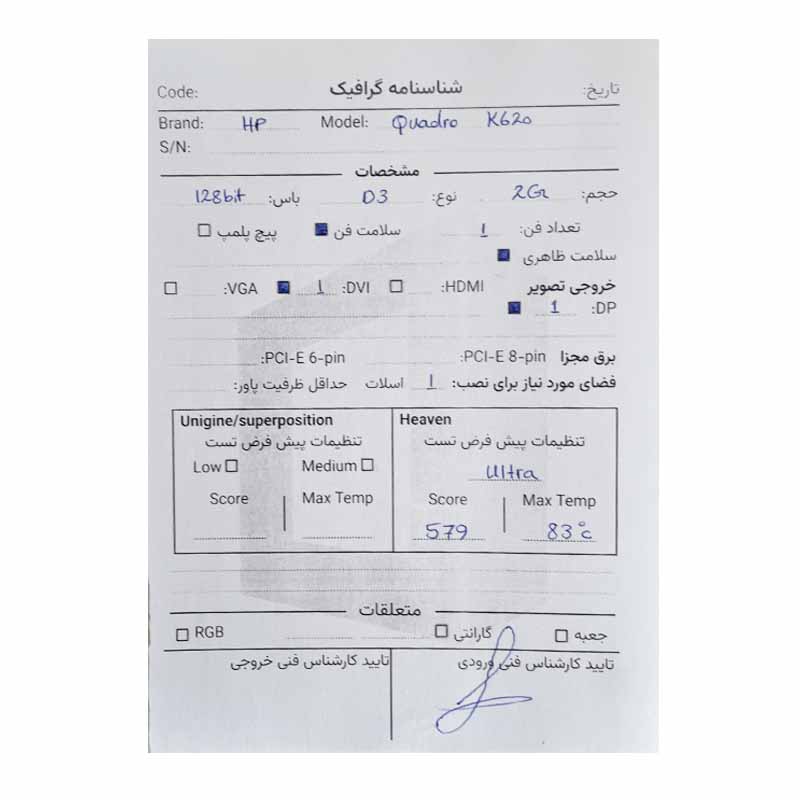 تاریخ: شناسنامه گرافیک Code:
Brand: HP Model: Quadro K620
S/N:
مشخصات
حجم: 2G نوع: D3 باس: 128bit
تعداد فن: 1 سلامت فن پیچ پلمپ
سلامت ظاهری
خروجی تصویر HDMI: DVI: 1 VGA:
DP: 1
برق مجزا PCI-E 8-pin: PCI-E 6-pin:
فضای مورد نیاز برای نصب: 1 اسلات حداقل ظرفیت پاور:
Unigine/superposition
تنظیمات پیش فرض تست
Low Medium
Score Max Temp
Heaven
تنظیمات پیش فرض تست
Ultra
Score Max Temp
579 83°c
متعلقات
جعبه گارانتی RGB
تایید کارشناس فنی ورودی تایید کارشناس فنی خروجی